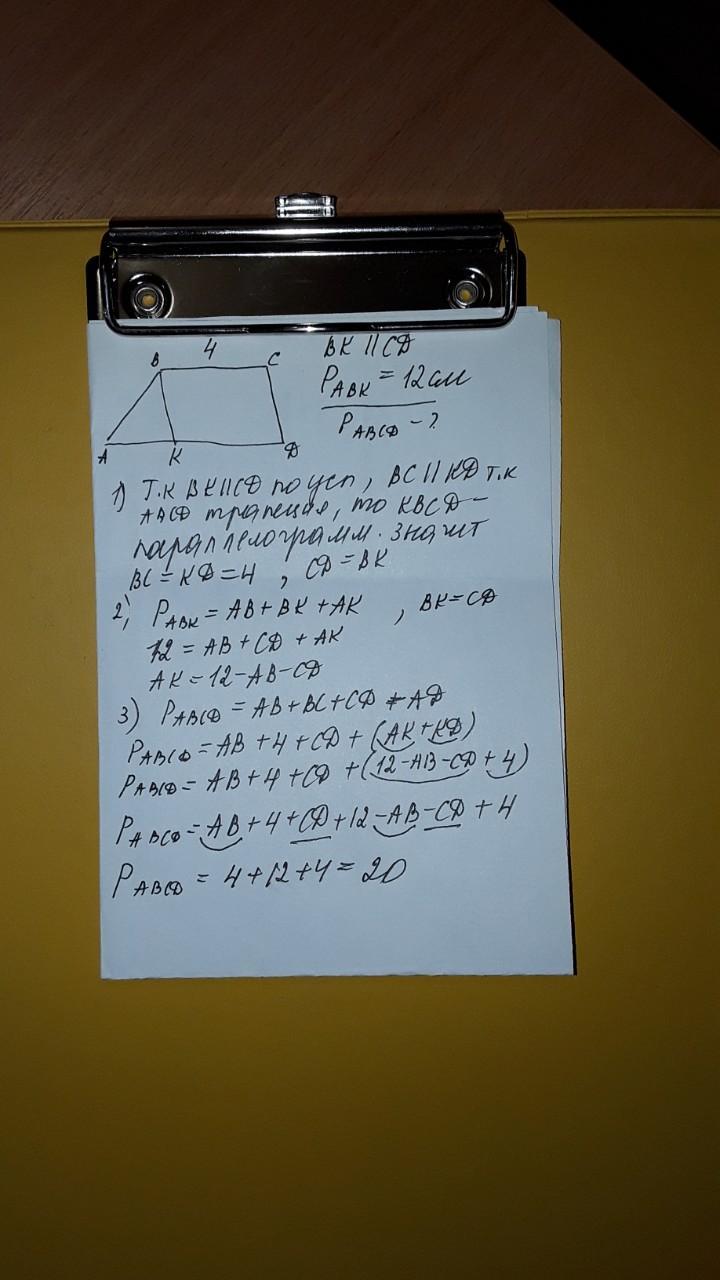 B 4 C
A K D
BK || CD
P_ABK = 12 см
P_ABCD - ?
1) Т.к BK||CD по усл, BC || KD т.к
ABCD трапеция, то KBCD -
параллелограмм. Значит
BC = KD = 4 , CD = BK
2) P_ABK = AB + BK + AK , BK = CD
12 = AB + CD + AK
AK = 12 - AB - CD
3) P_ABCD = AB + BC + CD + AD
P_ABCD = AB + 4 + CD + (AK + KD)
P_ABCD = AB + 4 + CD + (12 - AB - CD + 4)
P_ABCD = AB + 4 + CD + 12 - AB - CD + 4
P_ABCD = 4 + 12 + 4 = 20